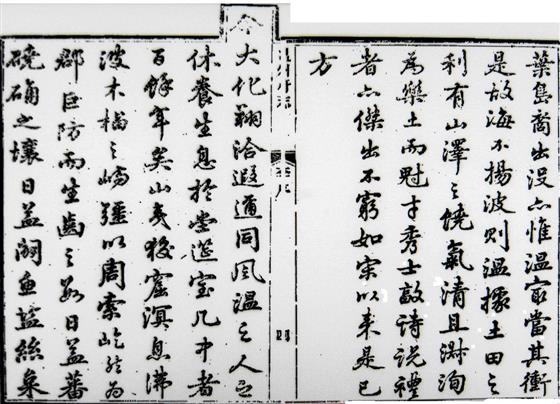 葉島裔出沒亦惟溫寔當其衝
是故海不揚波則溫據土田之
利有山澤之饒氣清且淑洵
為樂土而魁才秀士敦詩說禮
者亦傑出不窮如宋以來是已
方
溫州府志
序
四
今大化翔洽遐邇同風溫之人民
休養生息於堂筵室几中者
百餘年矣山夷狡窟溟息沸
波木榴之嶠疆以周索屹然為
郡巨防而生齒之數日益蕃
磽确之壤日益闢魚鹽絲枲